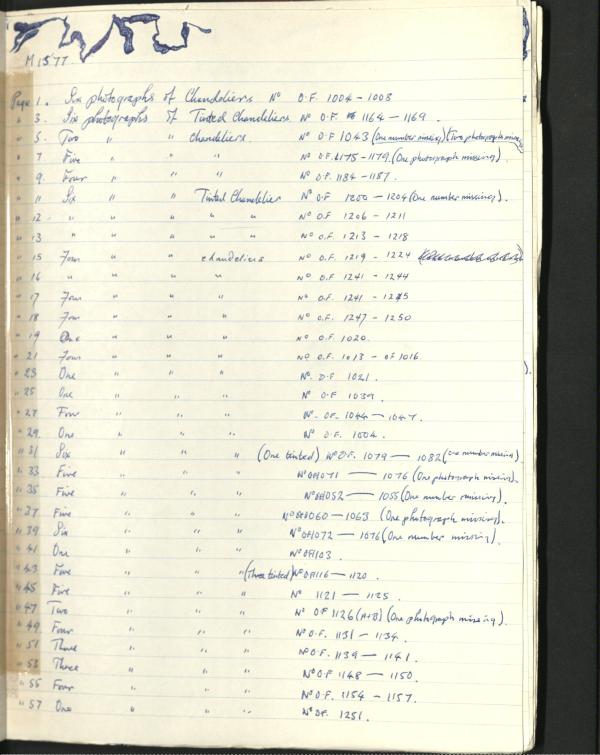 M 1577.
Page 1. Six photographs of Chandeliers No O.F 1004 - 1008
" 3. Six photographs of Tinted Chandeliers. No O.F 1164 - 1169.
" 5. Two " " chandeliers. No O.F 1043 (One number missing) (Two photographs missing)
" 7. Five " " " No O.F. 1175 - 1179. (One photograph missing).
" 9. Four " " " No O.F. 1184 - 1187.
" 11 Six " Tinted Chandelier No O.F 1200 - 1204 (One number missing).
" 12. " " " " " No O.F 1206 - 1211
" 13 " " " " " No O.F. 1213 - 1218
" 15 Four " " chandeliers No O.F. 1219 - 1224
" 16 " " " " No O.F. 1241 - 1244
" 17 Four " " " No O.F. 1241 - 1245
" 18 Four " " " No O.F. 1247 - 1250
" 19 One " " " No O.F. 1020.
" 21 Four " " " No O.F. 1013 - OF 1016.
" 23 One " " " No. O.F 1021.
" 25 One " " " No O.F 1039.
" 27 Four " " " No. OF. 1044 - 1047.
" 29. One " " " No O.F. 1004.
" 31 Six " " " (One tinted) No O.F. 1079 - 1082 (one number missing)
" 33 Five " " " No OF 1071 - 1076 (One photograph missing).
" 35 Five " " " No OF 1052 - 1055 (One number missing).
" 37 Five " " " No OF 1060 - 1063 (One photograph missing).
" 39 Six " " " No OF 1072 - 1076 (One number missing).
" 41 One " " " No OF 1103.
" 43 Five " " " (Three tinted) No OF 1116 - 1120.
" 45 Five " " " No 1121 - 1125.
" 47 Two " " " No OF 1126 (A+B) (One photograph missing).
" 49 Four " " " No O.F. 1131 - 1134.
" 51 Three " " " No O.F. 1139 - 1141.
" 53 Three " " " No O.F 1148 - 1150.
" 55 Four " " " No O.F. 1154 - 1157.
" 57 One " " " No OF. 1251.